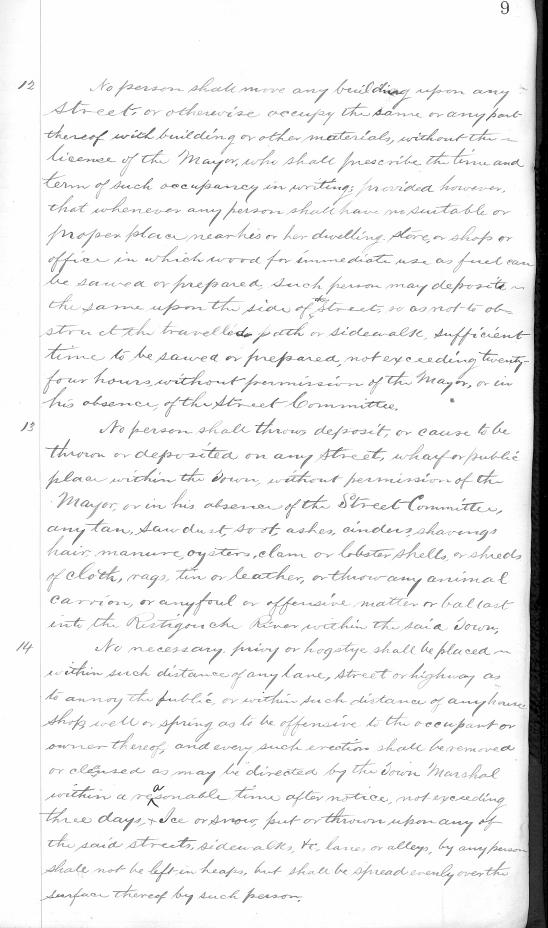 9
12 No person shall move any building upon any
street, or otherwise occupy the same or any part
thereof with building or other materials, without the
licence of the Mayor, who shall prescribe the time and
term of such occupancy in writing; provided however,
that whenever any person shall have no suitable or
proper place near his or her dwelling, store, or shop or
office in which wood for immediate use as fuel can
be sawed or prepared, such person may deposite
the same upon the side of the street, so as not to ob-
struct the travelled path or sidewalk, sufficient
time to be sawed or prepared, not exceeding twenty-
four hours, without permission of the Mayor, or in
his absence, of the Street Committee.
13 No person shall throw, deposit, or cause to be
thrown or deposited on any street, wharf or public
place within the Town, without permission of the
Mayor, or in his absence of the Street Committee,
any tan, sawdust, soot, ashes, cinders, shavings
hair, manure, oysters, clam or lobster shells, or shreds
of cloth, rags, tin or leather, or throw any animal
carrion, or any foul or offensive matter or ballast
into the Ristigouche River within the said Town,
14 No necessary, privy or hogstye shall be placed
within such distance of any lane, street or highway as
to annoy the public, or within such distance of any house
shop, well or spring as to be offensive to the occupant or
owner thereof, and every such erection shall be removed
or cleansed as may be directed by the Town Marshal
within a reasonable time after notice, not exceeding
three days, & Ice or snow, put or thrown upon any of
the said streets, sidewalks, &c, lanes or alleys, by any person
shall not be left in heaps, but shall be spread evenly over the
surface thereof by such person.